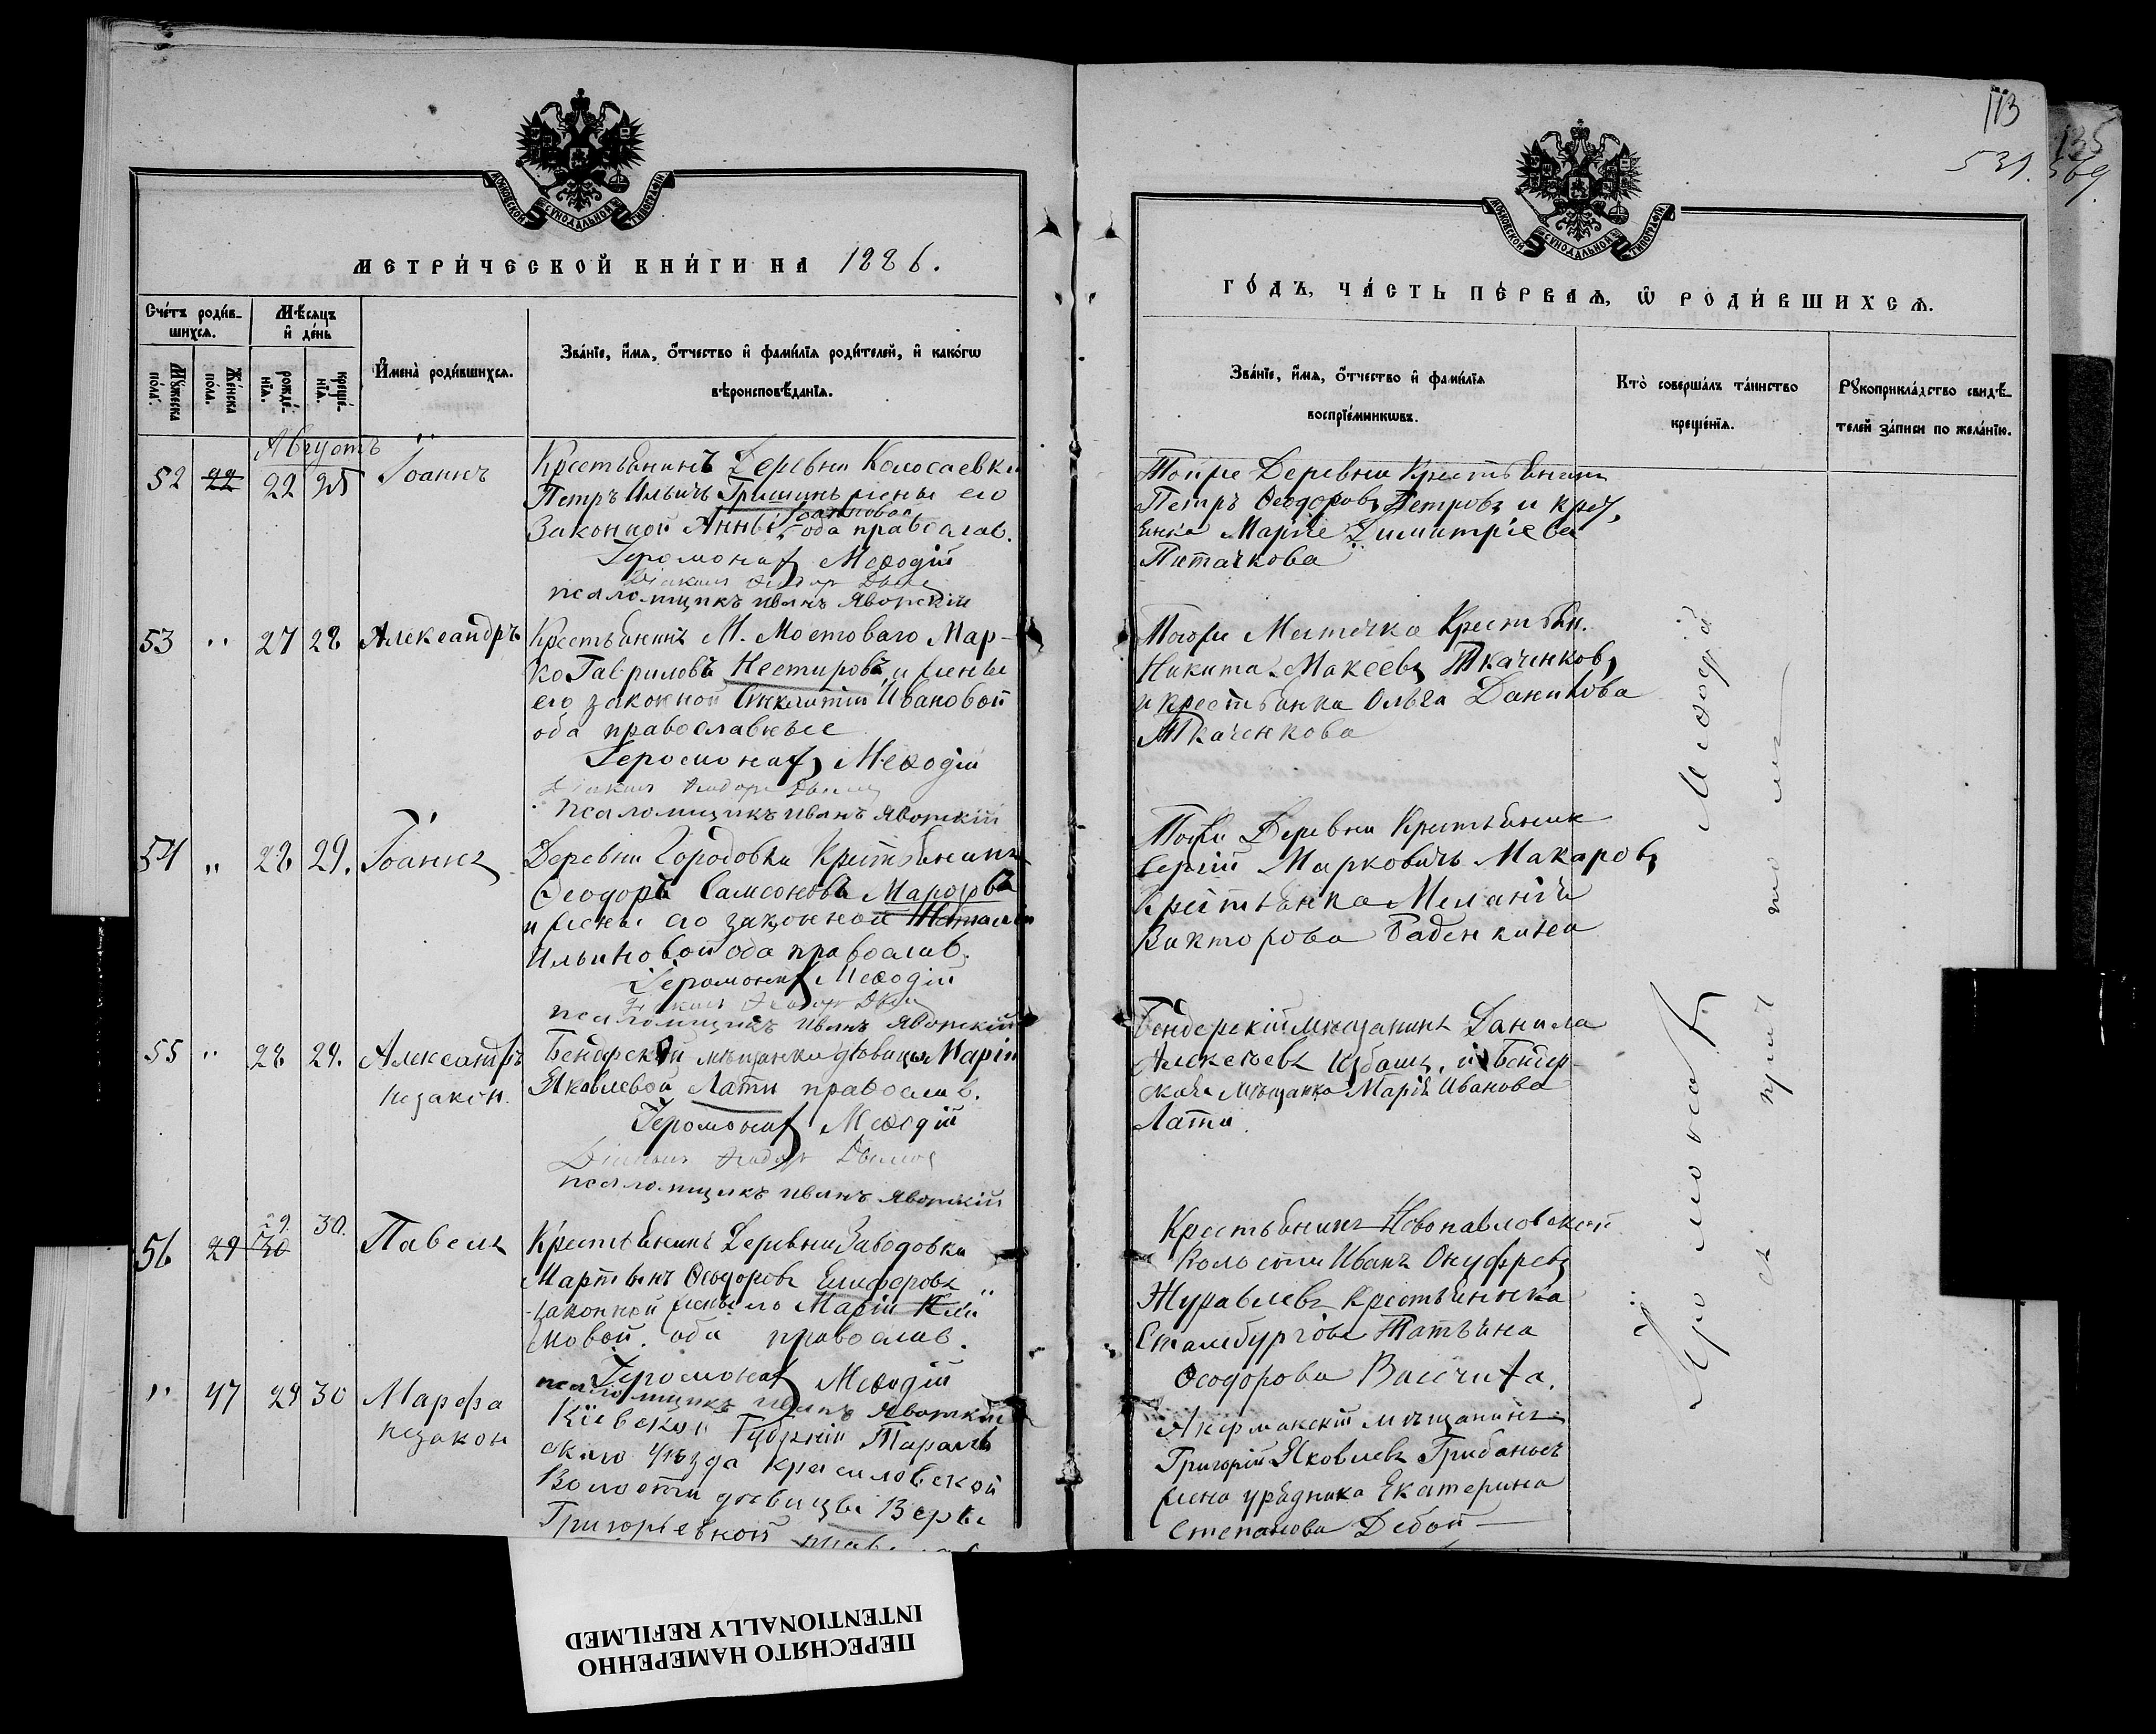 113
135
531.
569.
МОСКОВСКОЙ СУНОДАЛЬНОЙ ТИПОГРАФІИ
МЕТРИ́ЧЕСКОЙ КНИ́ГИ НА 1886.
Сче́тъ роди́в-
шихся.
Мѣ́сяцъ
и҆ де́нь
Мꙋ́жеска
по́ла.
Же́нска
по́ла.
рожде́-
нїя.
креще́-
нїя.
И҆мена̀ роди́вшихся.
Зва́нїе, и҆́мя, ѻ҆́тчество и҆ фами́лїя роди́телей, и҆ како́гѡ
вѣроисповѣ́данїя.
Августъ
52 22 22 25 Іоаннъ
Крестьянинъ Деревни Колосаевки
Петръ Ильичъ Гришинъ жены его
Законной Анны Іоанновой оба православ.
Іеромонах Меѳодій
псаломщикъ Иванъ Яворскій
53 " 27 28 Александръ
Крестьянинъ М. Мостоваго Мар-
ко Гавриловъ Нестировъ и жены
его законной Синклитіи Ивановой
оба православные
Іеромонах Меѳодій
псаломщикъ Иванъ Яворскій
54 " 28 29. Іоаннъ
Деревни Городовки Крестьянинъ
Ѳеодоръ Самсоновъ
и жены его законной
Ильиновой оба православ.
Іеромонах Меѳодій
псаломщикъ Иванъ Яворскій
55 " 28 29. Александръ
незакон.
Бендерской мѣщанки дѣвицы Маріи
Яковлевой Лати православ.
Іеромонах Меѳодій
псаломщикъ Иванъ Яворскій
56 29 30 29. 30. Павелъ
Крестьянинъ Деревни Заводовки
Мартынъ Ѳеодоровъ Елиферовъ
законной жены его Маріи Кли
мовой. оба православ.
Іеромонах Меѳодій
псаломщикъ Иванъ Яворскій
" 47 29 30 Марфа
незакон
Кіевской Губерніи Таращ
скаго уѣзда Красиловской
Волости дѣвицы Вѣры
Григорьевной
МОСКОВСКОЙ СУНОДАЛЬНОЙ ТИПОГРАФІИ
ГО́ДЪ, ЧА́СТЬ ПЕ́РВАЯ, Ѡ҆ РОДИ́ВШИХСЯ.
Зва́нїе, и҆́мя, ѻ҆́тчество и҆ фами́лїя
воспрїе́мникѡвъ.
Кто̀ соверша́лъ та́инство
креще́нїя.
Рꙋкоприкла́дство свидѣ́-
телей за́писи по жела́нїю.
Тойже Деревни Крестьянинъ
Петръ Ѳеодоровъ Петровъ и крест,
янка Марія Димитріева
Питачкова
Тогоже Местечка Крестьян.
Никита Макеевъ Ткаченковъ
и крестьянка Ольга Данилова
Ткаченкова
Тойже Деревни Крестьянинъ
Сергій Марковичъ Макаровъ
Крестьянка Меланія
Викторова
Бендерскій мѣщанинъ Данила
Алексѣевъ и Бендер-
ская мѣщанка Марія Иванова
Лати.
Крестьянинъ Новопавловской
Волости Иванъ Онуфревъ
Журавлевъ Крестьянка
Татьяна
Ѳеодорова
Акерманскій мѣщанинъ
Григорій Яковлевъ
жена урядника Екатерина
Степанова
Іеромонах Меѳодій
ПЕРЕСНЯТО НАМЕРЕННО
INTENTIONALLY REFILMED